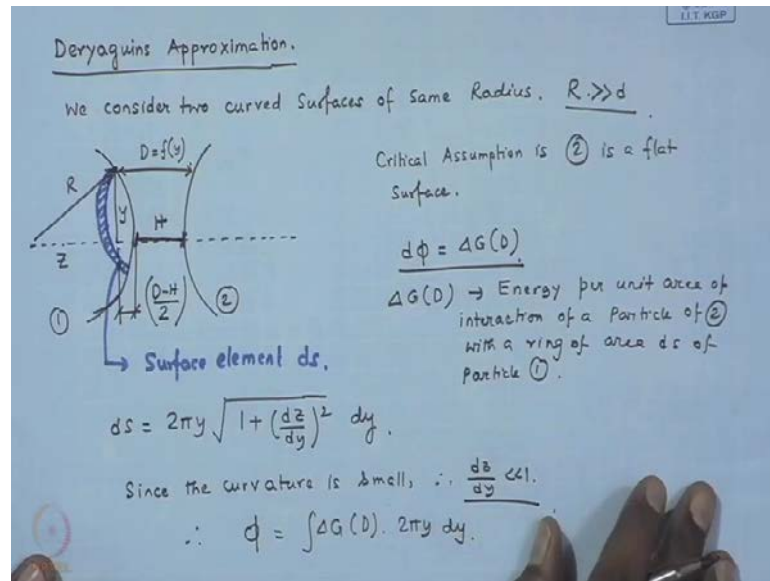 I.I.T. KGP
Deryaguins Approximation.
We consider two curved Surfaces of Same Radius. R>>d
D=f(y)
R
y
H
Z
(D-H/2)
1
2
Surface element ds.
Critical Assumption is ② is a flat
Surface.
dϕ = ΔG(D)
ΔG(D) → Energy per unit area of
interaction of a Particle of ②
with a ring of area ds of
Particle ①.
ds = 2πy √(1 + (dz/dy)²) dy.
Since the curvature is small, ∴ dz/dy <<1.
∴ ϕ = ∫ΔG(D). 2πy dy.